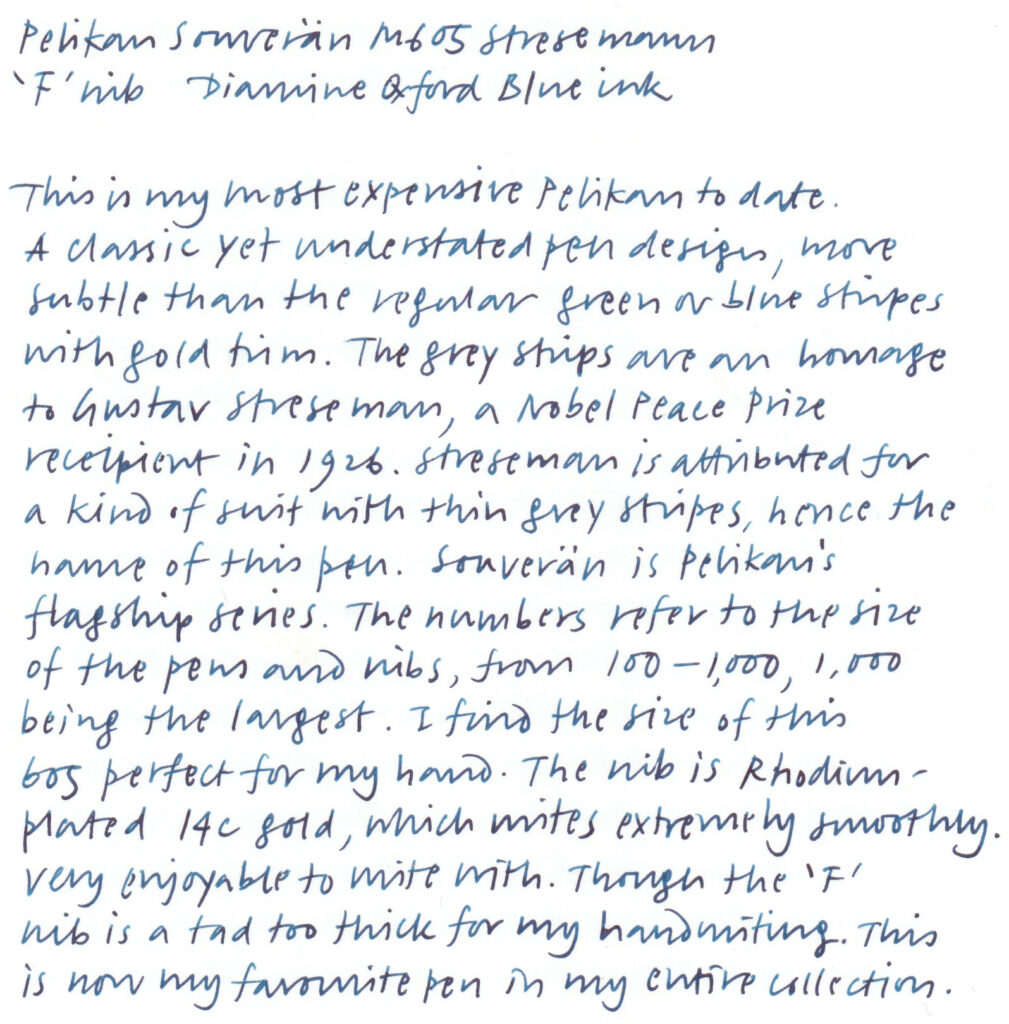 Pelikan Souverän M605 Stresemann
'F' nib Diamine Oxford Blue ink
This is my most expensive Pelikan to date.
A classic yet understated pen design, more
subtle than the regular green or blue stripes
with gold trim. The grey strips are an homage
to Gustav Streseman, a Nobel Peace Prize
receipient in 1926. Streseman is attributed for
a kind of suit with thin grey stripes, hence the
name of this pen. Souverän is Pelikan's
flagship series. The numbers refer to the size
of the pens and nibs, from 100 – 1,000, 1,000
being the largest. I find the size of this
605 perfect for my hand. The nib is Rhodium-
plated 14c gold, which writes extremely smoothly.
Very enjoyable to write with. Though the 'F'
nib is a tad too thick for my handwriting. This
is now my favourite pen in my entire collection.